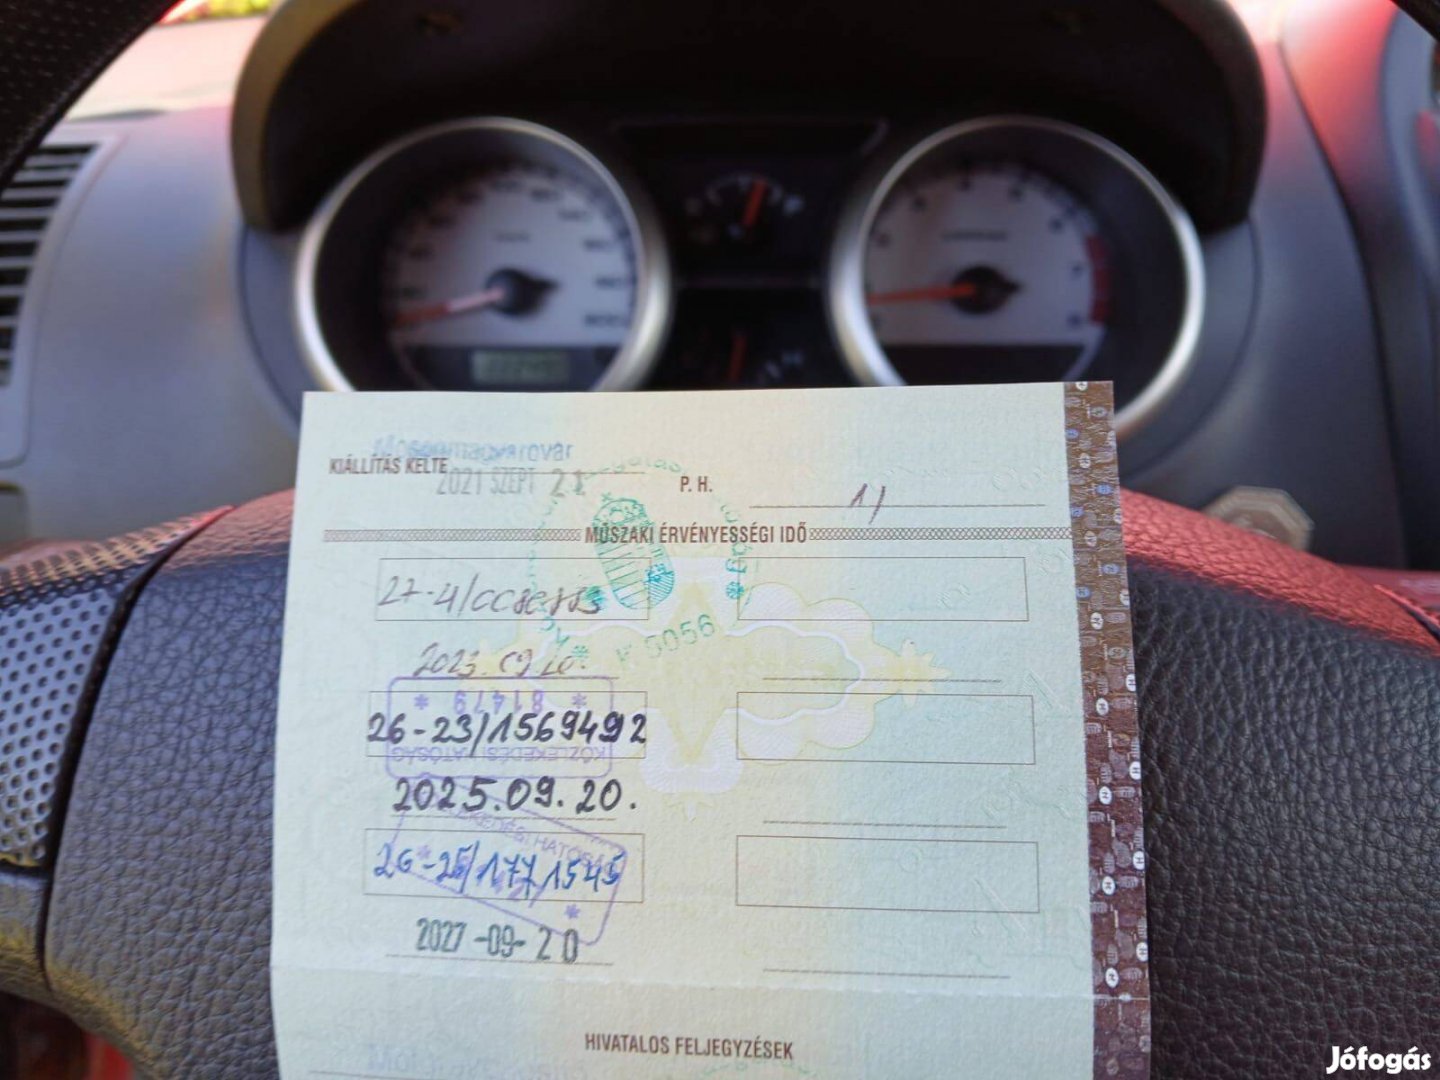 Mosonmagyaróvár
KIÁLLÍTÁS KELTE
2021 SZEPT 21
P. H.
MŰSZAKI ÉRVÉNYESSÉGI IDŐ
5056
2023.09 20.
* 81479 *
26-23/1569492
KÖZLEKEDÉSI HATÓSÁG
2025.09.20.
KÖZLEKEDÉSI HATÓSÁG
26-25/1771545
2027-09-20
HIVATALOS FELJEGYZÉSEK
Jófogás